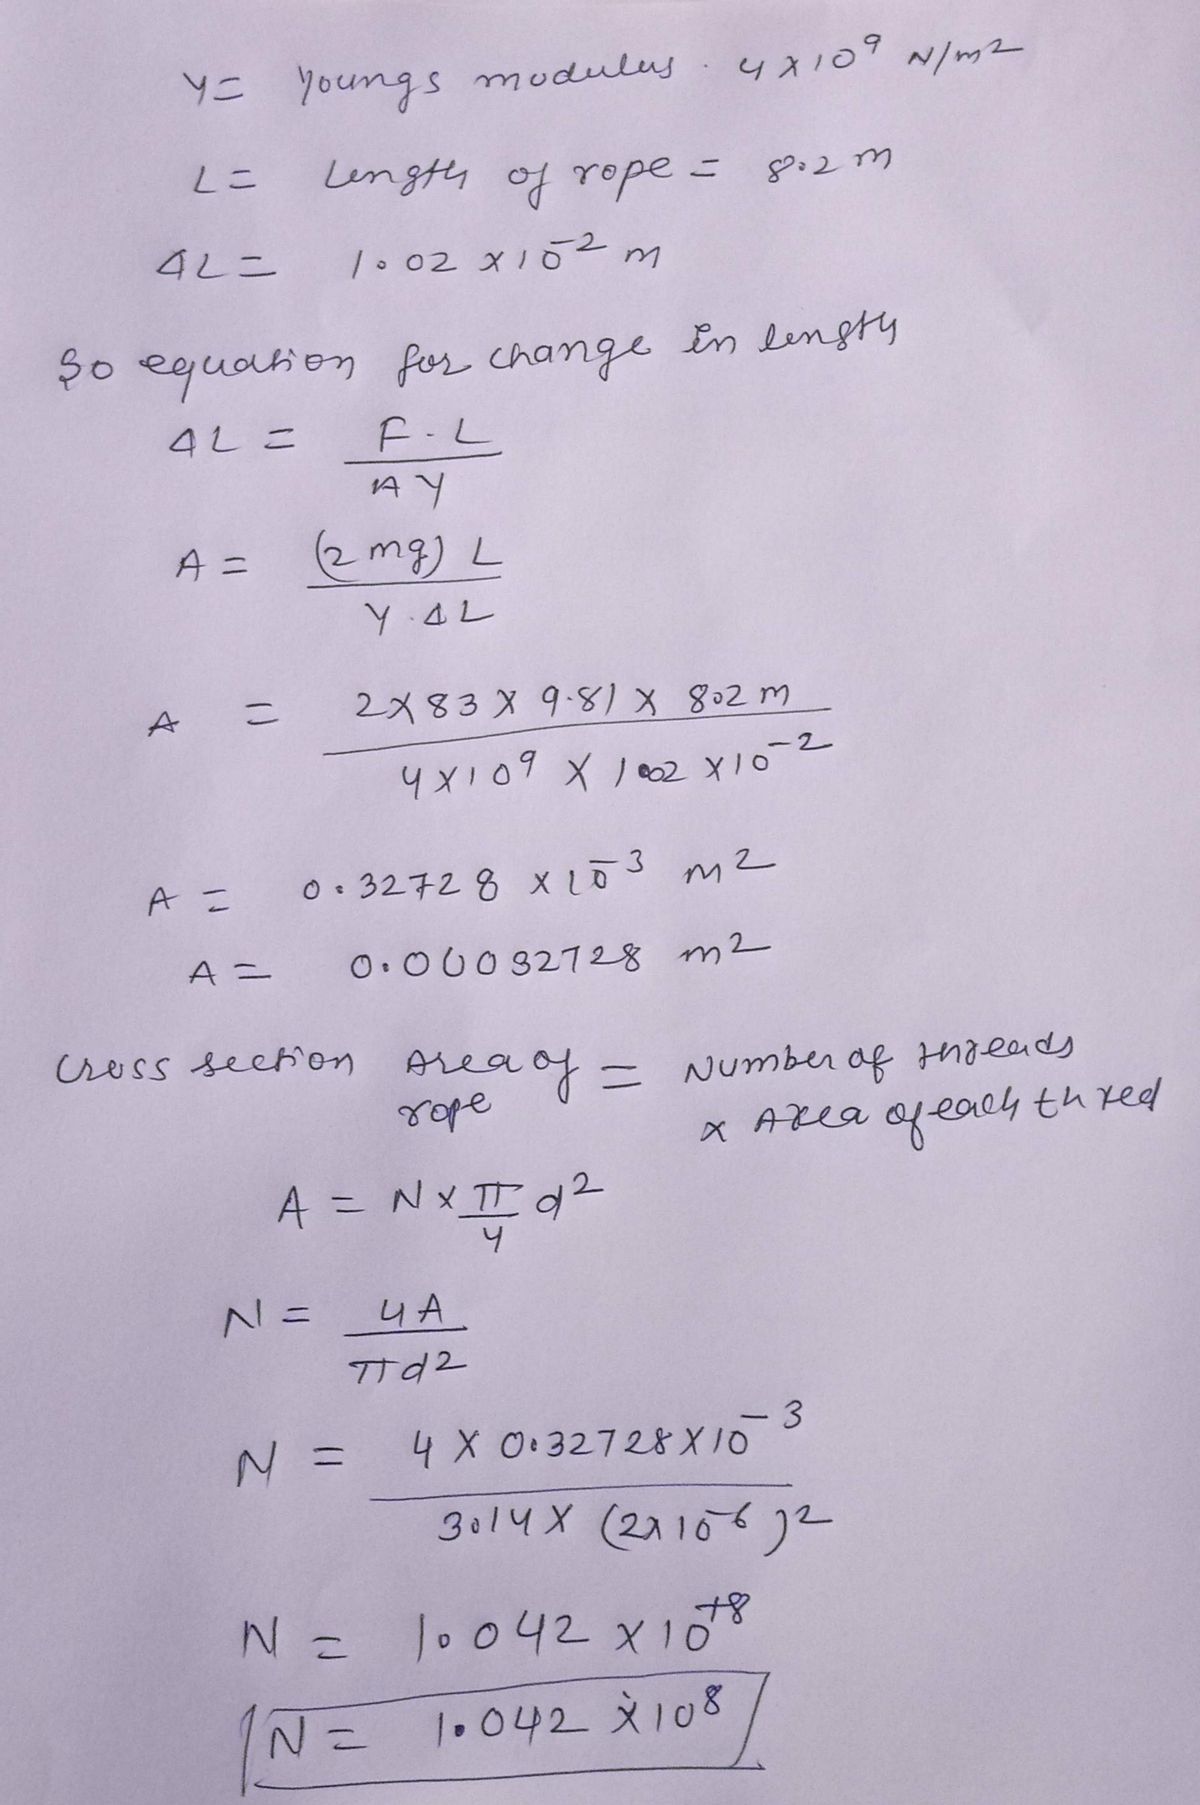 Y = Youngs modulus . 4 x 10⁹ N/m²
L = Length of rope = 8.2 m
ΔL = 1.02 x 10⁻² m
So equation for change in length
ΔL = F . L / A Y
A = (2 mg) L / Y . ΔL
A = 2 x 83 x 9.81 x 8.2 m / 4 x 10⁹ x 1.02 x 10⁻²
A = 0.32728 x 10⁻³ m²
A = 0.00032728 m²
Cross section Area of rope = Number of threads
x Area of each thred
A = N x π/4 d²
N = 4A / πd²
N = 4 x 0.32728 x 10⁻³ / 3.14 x (2 x 10⁻⁶)²
N = 1.042 x 10⁺⁸
N = 1.042 x 10⁸